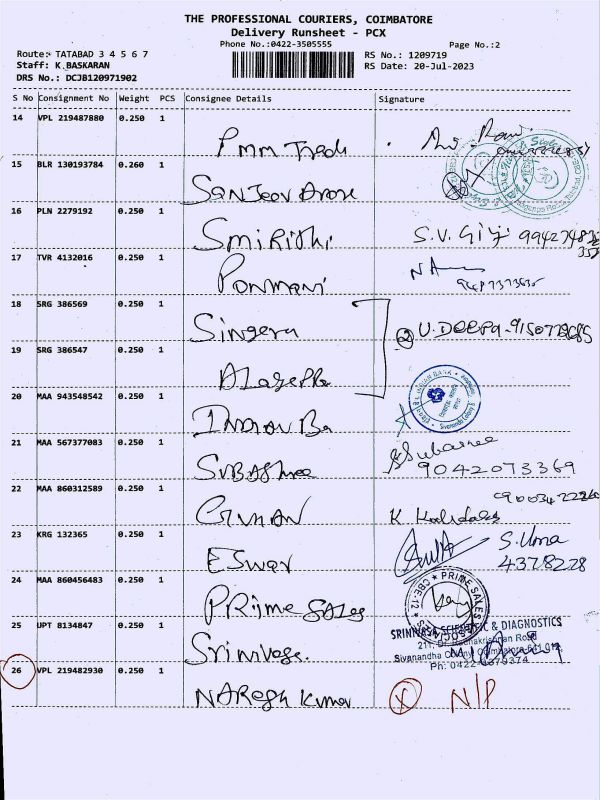 THE PROFESSIONAL COURIERS, COIMBATORE
Delivery Runsheet - PCX
Phone No.:0422-3505555
Page No.:2
Route: TATABAD 3 4 5 6 7
Staff: K.BASKARAN
DRS No.: DCJB120971902
RS No.: 1209719
RS Date: 20-Jul-2023
S No Consignment No Weight PCS Consignee Details Signature
14 VPL 219487880 0.250 1
Pmm
15 BLR 130193784 0.260 1
Sanjeev
16 PLN 2279192 0.250 1
Smirithi S.V. Giri
17 TVR 4132016 0.250 1
Ponmani
18 SRG 386569 0.250 1
Singera 2 U.DEEPA-9150779685
19 SRG 386547 0.250 1
20 MAA 943548542 0.250 1
INDIAN Ba INDIAN BANK
21 MAA 567377083 0.250 1
SUBAShree Subasree
9042073369
22 MAA 860312589 0.250 1
K. Kalidass
23 KRG 132365 0.250 1
ESwar S.Uma
43278228
24 MAA 860456483 0.250 1
PRime SALes PRIME SALES CBE-12
25 UPT 8134847 0.250 1
Srinivasa SRINIVASA SCIENTIFIC & DIAGNOSTICS
211, Dr. Radhakrishnan Road
Sivanandha Colony, Coimbatore-641 012.
26 VPL 219482930 0.250 1
NAResh Kumar X N/P